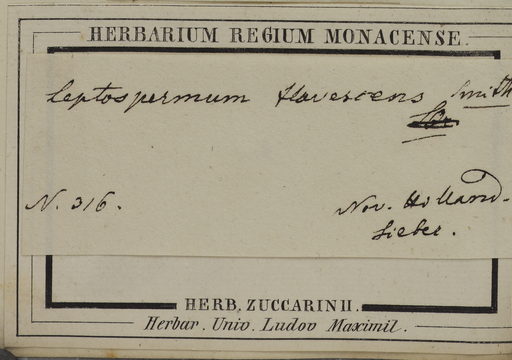 HERBARIUM REGIUM MONACENSE.
Leptospermum flavescens Smith
N. 316.
Nov. Holland.
Sieber.
HERB. ZUCCARINII.
Herbar. Univ. Ludov Maximil.